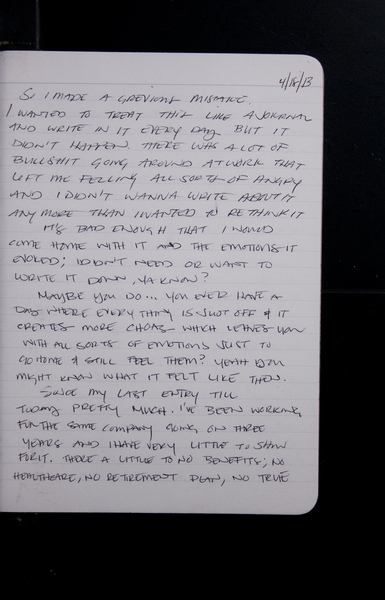 4/18/13
So I MADE A GREVIOUS MISTAKE.
I WANTED TO TREAT THIS LIKE A JOURNAL
AND WRITE IN IT EVERY DAY BUT IT
DIDN'T HAPPEN. THERE WAS A LOT OF
BULLSHIT GOING AROUND AT WORK THAT
LEFT ME FELLING ALL SORTS OF ANGRY
AND I DIDN'T WANNA WRITE ABOUT IT
ANY MORE THAN I WANTED TO RETHINK IT
IT'S BAD ENOUGH THAT I WOULD
COME HOME WITH IT AND THE EMOTIONS IT
EVOKED; I DIDN'T NEED OR WANT TO
WRITE IT DOWN, YA KNOW?
MAYBE YOU DO... YOU EVER HAVE A
DAY WHERE EVERY THING IS JUST OFF & IT
CREATES MORE CHOAS WHICH LEAVES YOU
WITH ALL SORTS OF EMOTIONS JUST TO
GO HOME & STILL FEEL THEM? YEAH YOU
MIGHT KNOW WHAT IT FELT LIKE THEN.
SINCE MY LAST ENTRY TILL
TODAY PRETTY MUCH. I'VE BEEN WORKING
FOR THE SAME COMPANY GOING ON THREE
YEARS AND I HAVE VERY LITTLE TO SHOW
FOR IT. THERE A LITTLE TO NO BENEFITS; NO
HEALTHCARE, NO RETIREMENT PLAN, NO TRUE